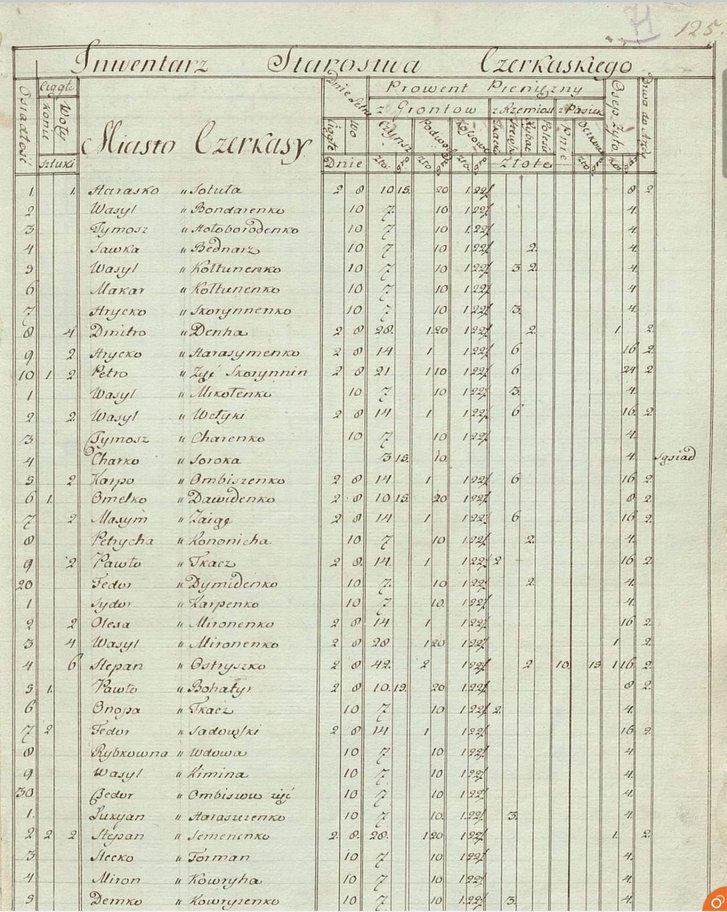 125.
Inwentarz Starostwa Czerkaskiego
Osiadłość Ciągłe Dnie Prowent Pieniężny
konie Woły z Grontow z Rzemiosł z Pasiek
Miasto Czerkasy
sztuki Dnie Złote
1 1. Harasko " Sotula 2 8 10 15. 20 1.22½ 8 2
2 Wasyl " Bondarenko 10 7. 10 1.22½ 4.
3 Tymosz " Hołoborodenko 10 7. 10 1.22½ 4.
4 Sawka " Bednarz 10 7. 10 1.22½ 2. 4.
5 Wasyl " Kołtunenko 10 7. 10 1.22½ 3. 2. 4.
6 Makar " Kołtunenko 10 7. 10 1.22½ 4.
7 Hrycko " Skorynnenko 10 7. 10 1.22½ 3. 4.
8 4 Dmitro " Denha 2 8 28. 1 20 1.22½ 2. 1. 2.
9 2 Hrycko " Harasymenko 2 8 14 1 1.22½ 6 16 2.
10 1 2 Petro " Zięć Skorynnin 2 8 21 1 10 1.22½ 6 24 2
1 Wasyl " Mikołenko 10 7 10 1.22½ 3. 4.
2 2 Wasyl " Wełyki 2 8 14 1 1.22½ 6 16 2
3 Tymosz " Charenko 10 7 10 1.22½ 4.
4 Charko " Soroka 3 15. 10 4. sąsiad
5 2 Karpo " Ombiszenko 2 8 14 1 1.22½ 6 16 2
6 1. Omelko " Dawidenko 2 8 10 15. 20 1.22½ 8 2
7 2 Maxym " 2 8 14 1 1.22½ 6 16 2.
8 Petrycha " Kononicha 10 7 10 1.22½ 2. 4.
9 2 Pawło " Tkacz 2 8. 14. 1 1.22½ 2 16 2.
20 Fedor " Dymidenko 10 7. 10 1.22½ 2. 4.
1 Sydor " Karpenko 10 7 10. 1.22½ 4.
2 2 Olexa " Mironenko 2 8 14 1 1.22½ 16 2
3 4 Wasyl " Mironenko 2 8 28 1 20 1.22½ 1 2.
4 6 Stepan " Ostryszko 2 8 42. 2 1.22½ 2 10. 15 1 16 2
5 1. Pawło " Bohatyr 2 8 10. 15. 20 1.22½ 8 2
6 Onopa " Tkacz 10 7 10 1.22½ 2. 4.
7 2 Fedor " Sadowski 2 8 14 1 1.22½ 16 2.
8 Rybkowna " Wdowa 10 7 10 1.22½ 4
9 Wasyl " Kimina 10 7 10 1.22½ 4
30 Fedor " zięć 10 7 10 1.22½ 4.
1. Łukyan " Haraszczenko 10 7 10. 1.22½ 3. 4.
2 2 2 Stepan " Semenenko 2. 8. 28. 1 20 1.22½ 1. 2.
3 Stecko " Forman 10 7 10 1.22½ 4.
4 Miron " Kowryha 10 7 10 1.22½ 4.
5 Demko " Kowryzenko 10 7 10 1.22½ 3. 4.